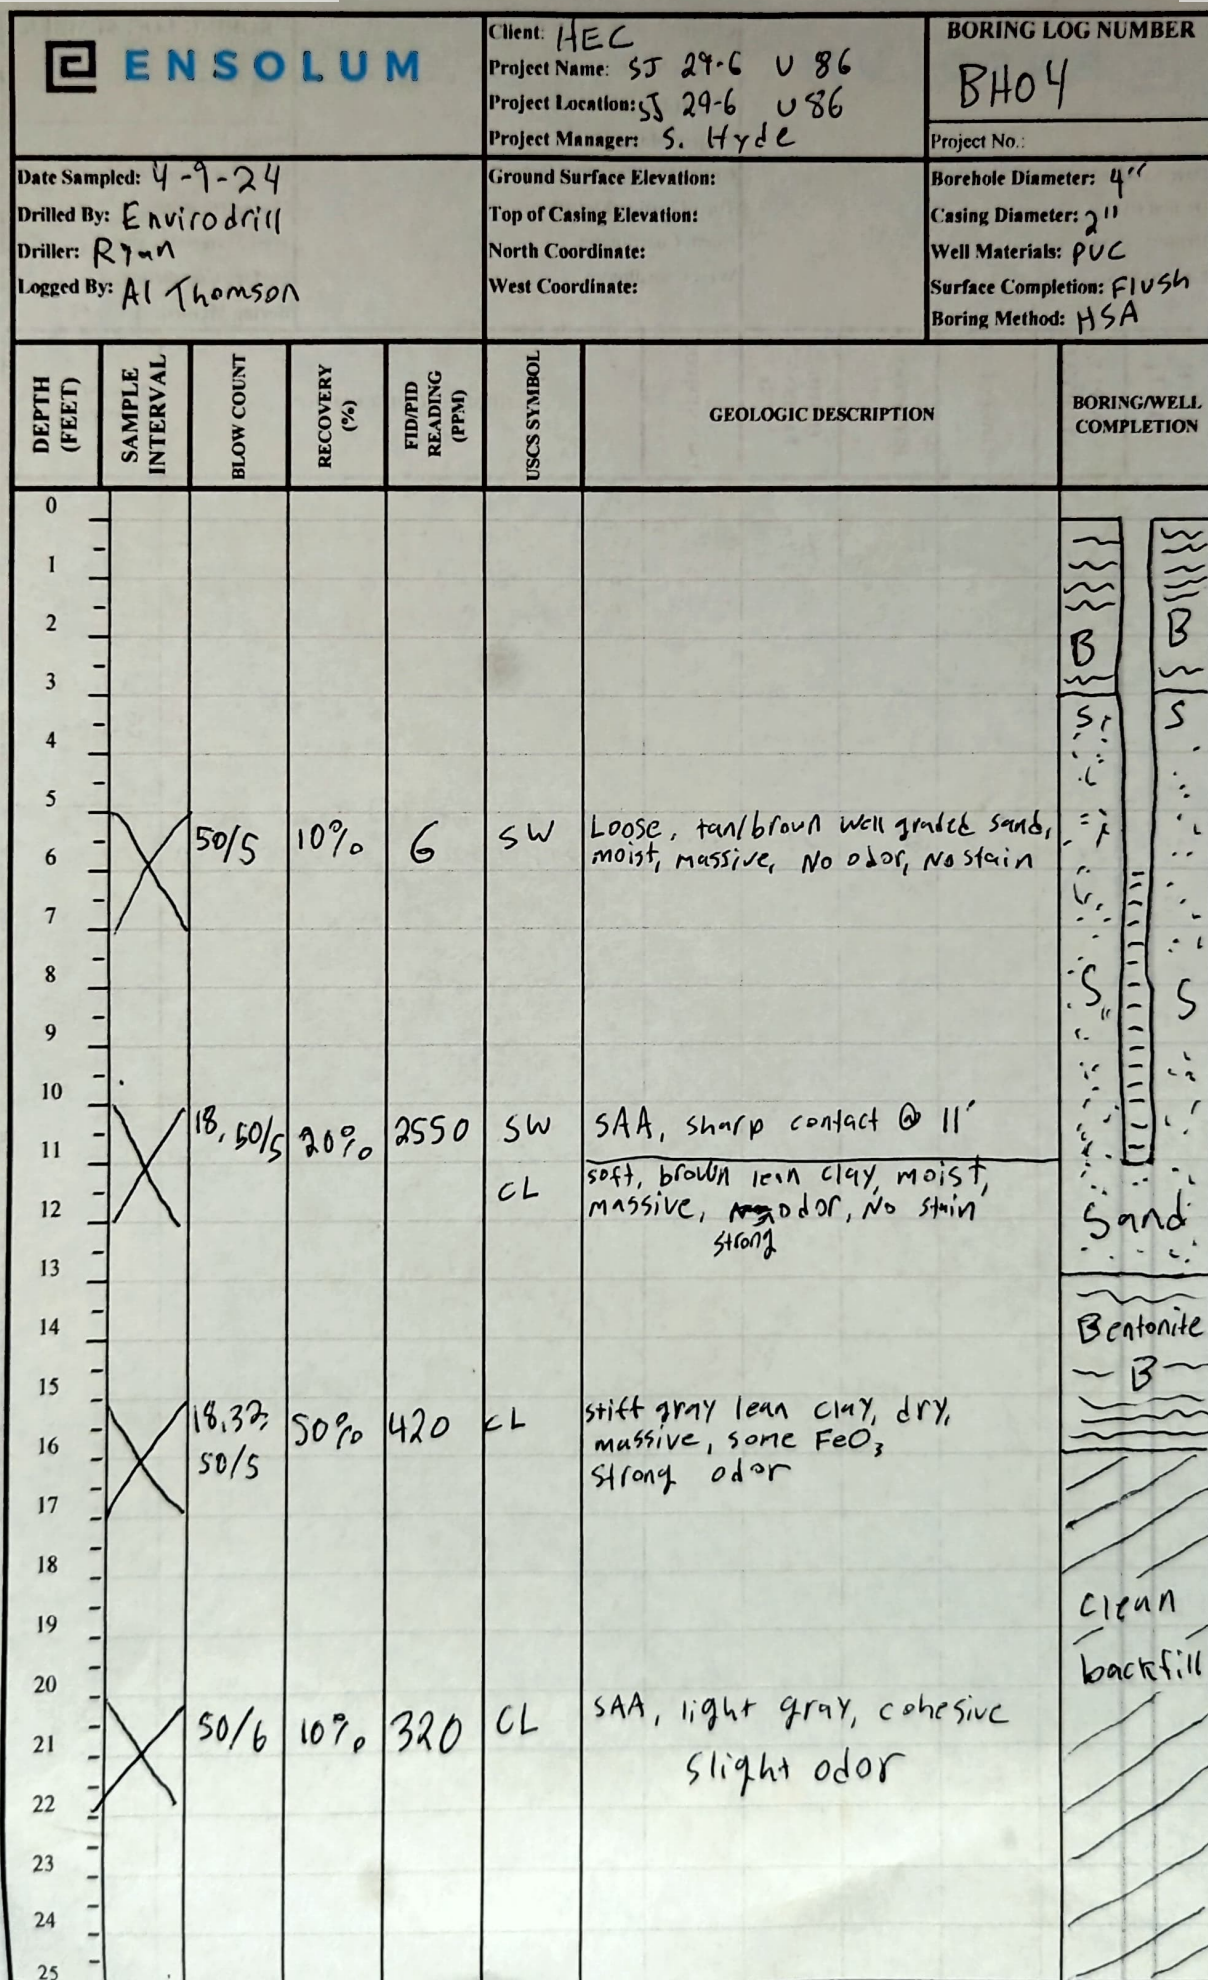 ENSOLUM
Client: HEC
Project Name: SJ 29-6 U 86
Project Location: SJ 29-6 U86
Project Manager: S. Hyde
BORING LOG NUMBER
BH04
Project No.:
Date Sampled: 4-9-24
Drilled By: Envirodrill
Driller: Ryan
Logged By: Al Thomson
Ground Surface Elevation:
Top of Casing Elevation:
North Coordinate:
West Coordinate:
Borehole Diameter: 4"
Casing Diameter: 2"
Well Materials: PVC
Surface Completion: Flush
Boring Method: HSA
DEPTH (FEET)
SAMPLE INTERVAL
BLOW COUNT
RECOVERY (%)
FID/PID READING (PPM)
USCS SYMBOL
GEOLOGIC DESCRIPTION
BORING/WELL COMPLETION
0
1
2
B B
3
S S
4
5
50/5 10% 6 SW Loose, tan/brown well graded sand,
moist, massive, No odor, No stain
6
7
8
S S
9
10
18, 50/5 20% 2550 SW SAA, sharp contact @ 11'
11
CL soft, brown lean clay, moist,
massive, odor, No stain
strong
12
Sand
13
14
Bentonite
15
B
18,32, 50% 420 CL stiff gray lean clay, dry,
50/5 massive, some FeO3
strong odor
16
17
18
19
clean
20
backfill
50/6 10% 320 CL SAA, light gray, cohesive
slight odor
21
22
23
24
25